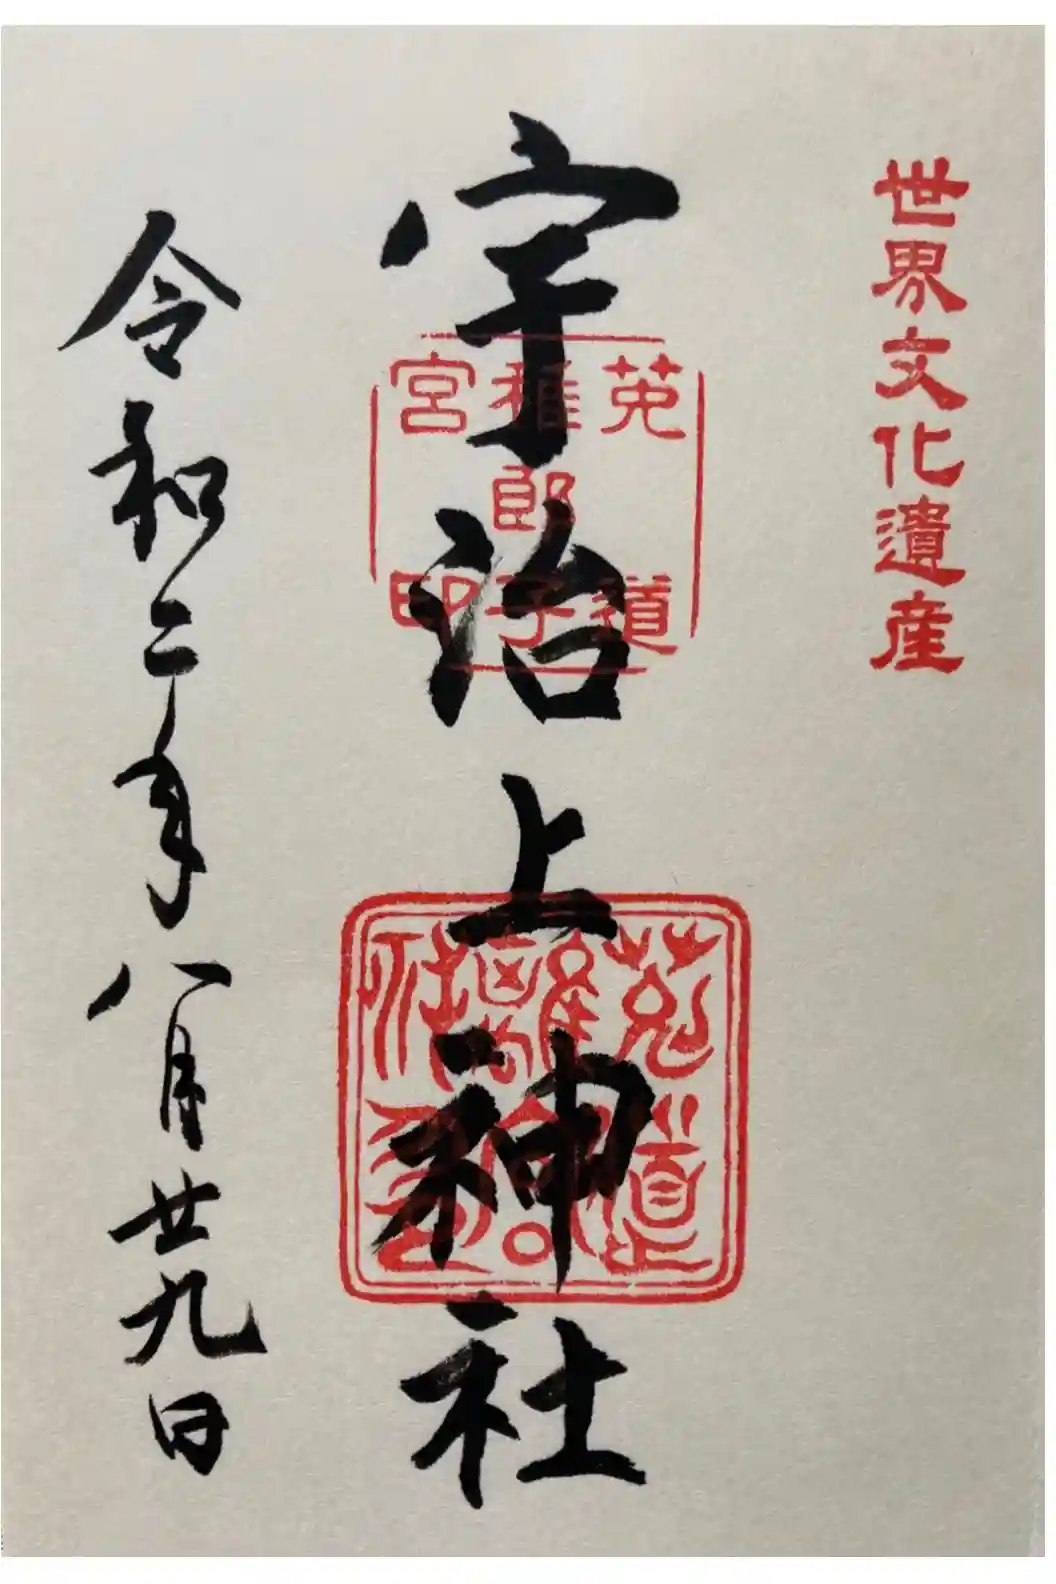 世界文化遺産
宇治上神社
菟道
稚郎子
宮印
令和二年八月廿九日